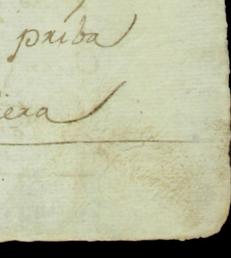 priba
iera